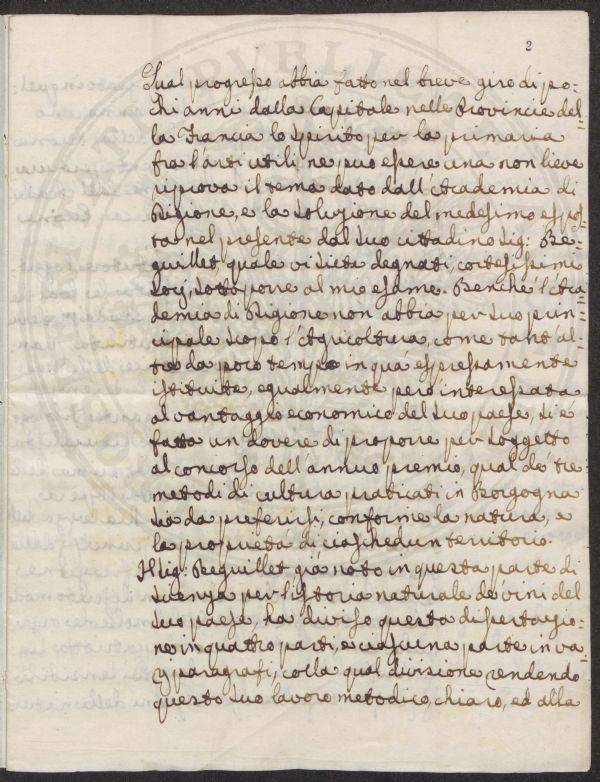 2
Qual progresso abbia fatto nel breve giro di po-
chi anni dalla Capitale nelle Provincie del-
la Francia lo spirito per la primaria
fra l'arti utili, ne può essere una non lieve
riprova il tema dato dall'Academia di
Digione, e la soluzione del medesimo espos-
ta nel presente dal suo cittadino Sig: Be-
guillet, quale vi siete degnati, cortesissimi
Socj, sottoporre al mio esame. Benchè l'Aca-
demia di Digione non abbia per suo prin-
cipale scopo l'Agricoltura, come tant'al-
tre da poco tempo in quà espressamente
istituite, egualmente però interessata
al vantaggio economico del suo paese, si è
fatto un dovere di proporre per soggetto
al concorso dell'annuo premio, qual de' tre
metodi di cultura praticati in Borgogna
sia da preferirsi, conforme la natura, e
la proprietà di ciaschedun territorio.
Il sig: Beguillet già noto in questa parte di
scienza per l'istoria naturale de' vini del
suo paese, ha diviso questa dissertazio-
ne in quattro parti, e ciascuna parte in va-
rj paragrafi, colla qual divisione rendendo
questo suo lavoro metodico, chiaro, ed alla